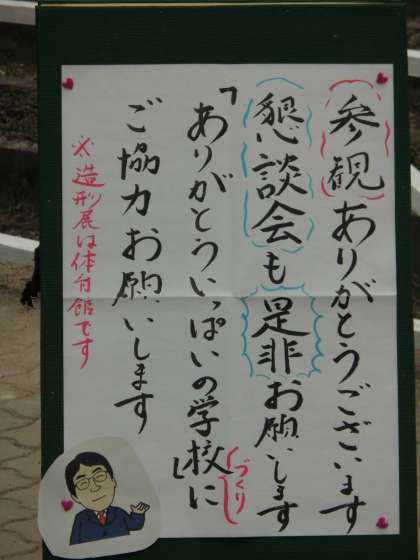 参観ありがとうございます
懇談会も是非お願いします
「ありがとういっぱいの学校」に
づくり
ご協力お願いします
※造形展は体育館です